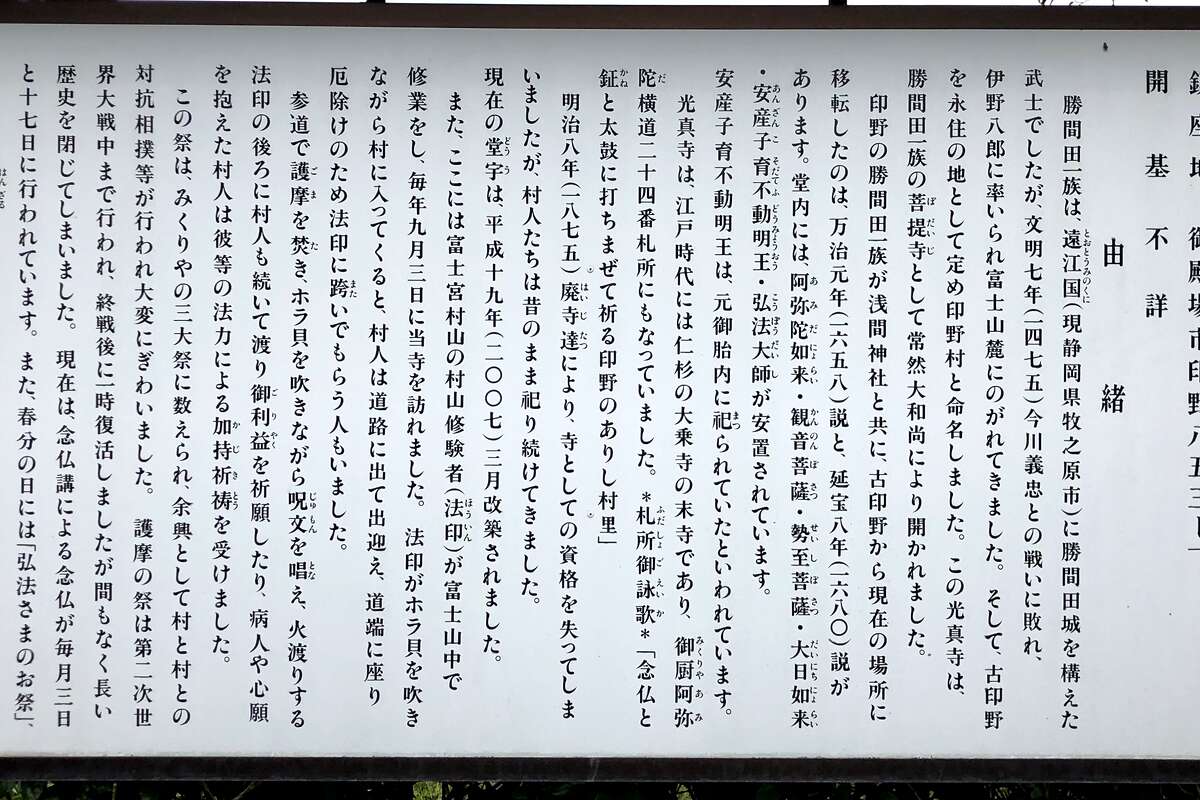 御殿場市印野八五三
開基不詳
由緒
勝間田一族は、遠江国(現静岡県牧之原市)に勝間田城を構えた
武士でしたが、文明七年(一四七五)今川義忠との戦いに敗れ、
伊野八郎に率いられ富士山麓にのがれてきました。そして、古印野
を永住の地として定め印野村と命名しました。この光真寺は、
勝間田一族の菩提寺として常然大和尚により開かれました。
印野の勝間田一族が浅間神社と共に、古印野から現在の場所に
移転したのは、万治元年(一六五八)説と、延宝八年(一六八〇)説が
あります。堂内には、阿弥陀如来・観音菩薩・勢至菩薩・大日如来
・安産子育不動明王・弘法大師が安置されています。
安産子育不動明王は、元御胎内に祀られていたといわれています。
光真寺は、江戸時代には仁杉の大乗寺の末寺であり、御厨阿弥
陀横道二十四番札所にもなっていました。*札所御詠歌*「念仏と
鉦と太鼓に打ちまぜて祈る印野のありし村里」
明治八年(一八七五)廃寺達により、寺としての資格を失ってしま
いましたが、村人たちは昔のまま祀り続けてきました。
現在の堂宇は、平成十九年(二〇〇七)三月改築されました。
また、ここには富士宮村山の村山修験者(法印)が富士山中で
修業をし、毎年九月三日に当寺を訪れました。法印がホラ貝を吹き
ながら村に入ってくると、村人は道路に出て出迎え、道端に座り
厄除けのため法印に跨いでもらう人もいました。
参道で護摩を焚き、ホラ貝を吹きながら呪文を唱え、火渡りする
法印の後ろに村人も続いて渡り御利益を祈願したり、病人や心願
を抱えた村人は彼等の法力による加持祈祷を受けました。
この祭は、みくりやの三大祭に数えられ、余興として村と村との
対抗相撲等が行われ大変にぎわいました。護摩の祭は第二次世
界大戦中まで行われ、終戦後に一時復活しましたが間もなく長い
歴史を閉じてしまいました。現在は、念仏講による念仏が毎月三日
と十七日に行われています。また、春分の日には「弘法さまのお祭」、